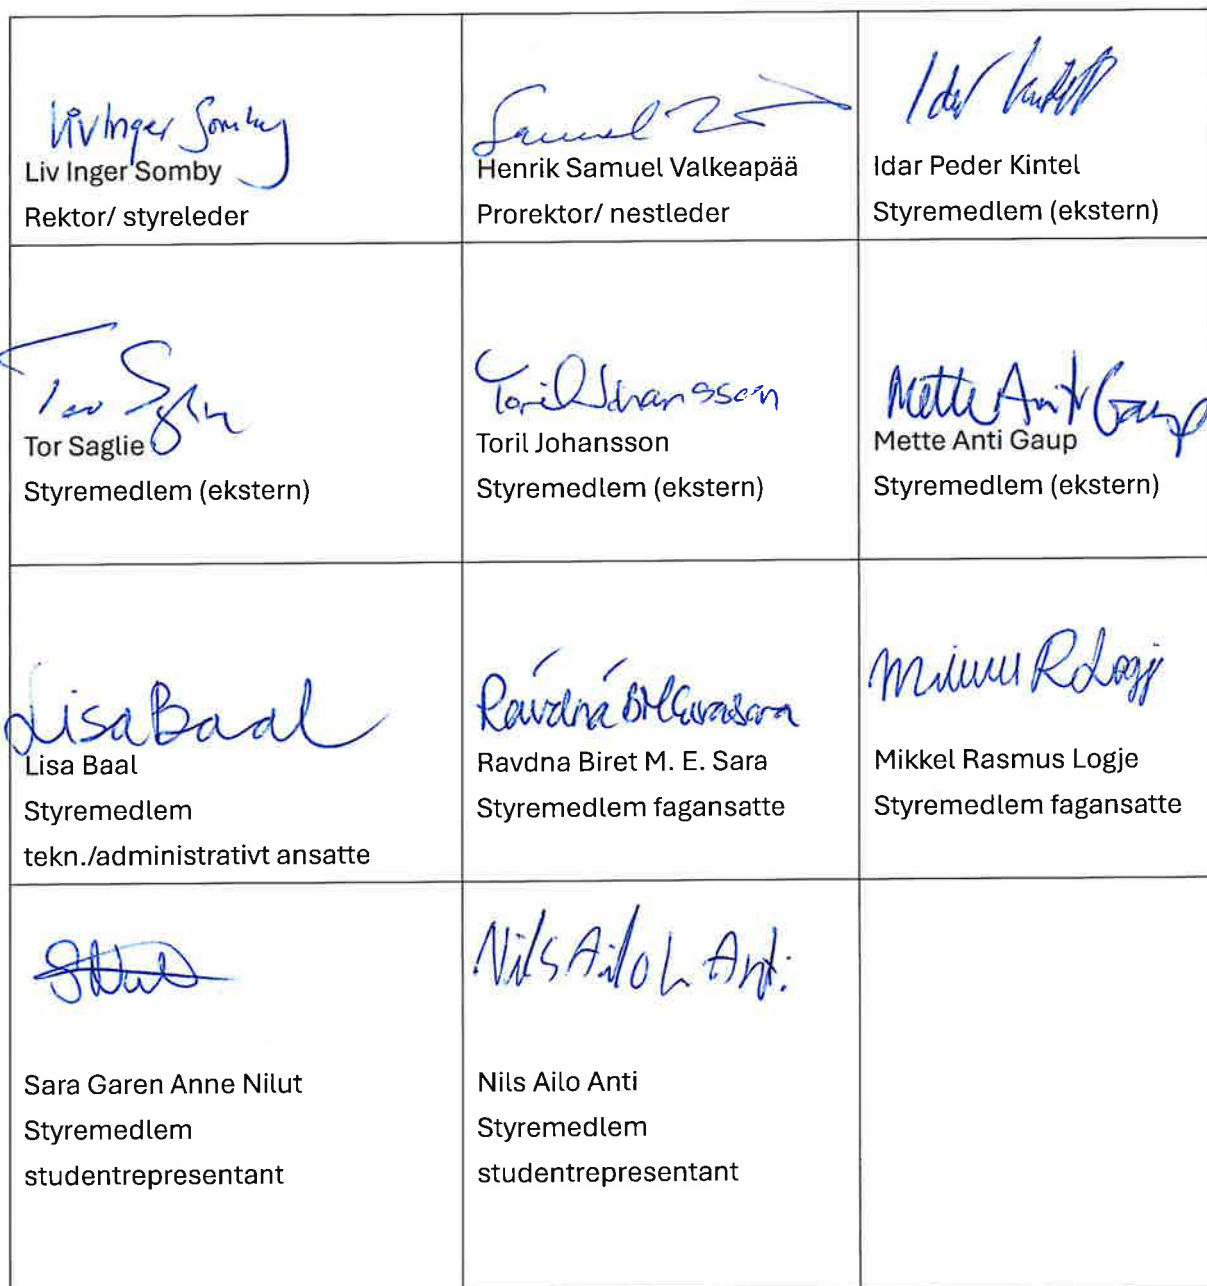 Liv Inger Somby
Liv Inger Somby
Rektor/ styreleder
Samuel
Henrik Samuel Valkeapää
Prorektor/ nestleder
Idar Kintel
Idar Peder Kintel
Styremedlem (ekstern)
Tor Saglie
Tor Saglie
Styremedlem (ekstern)
Toril Johansson
Toril Johansson
Styremedlem (ekstern)
Mette Anti Gaup
Mette Anti Gaup
Styremedlem (ekstern)
Lisa Baal
Lisa Baal
Styremedlem
tekn./administrativt ansatte
Ravdna Biret M. E. Sara
Styremedlem fagansatte
Mikkel R Logje
Mikkel Rasmus Logje
Styremedlem fagansatte
Sara Garen Anne Nilut
Styremedlem
studentrepresentant
Nils Ailo L Anti
Nils Ailo Anti
Styremedlem
studentrepresentant